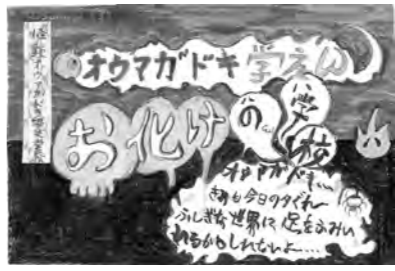 怪談オウマガドキ学園
オウマガドキ学えん
お化けの学校
オウマガドキ…
きみも今日の夕ぐれ
ふしぎな世界に足をふみい
れるかもしれないよ……